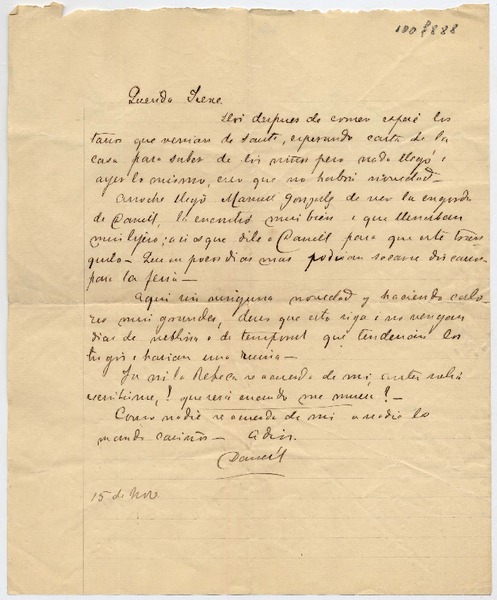 190888
Querida Irene
Hoi despues de comer esperé los
que venian de Santo, esperando carta de la
casa para saber de los niños pero nada llegó i
ayer lo mismo, creo que no habrá novedad—
Anoche llegó Manuel Gonzalez de ver la engorda
de Daniel, la encontró mui bien i que
mui lijero; asi es que dile a Daniel para que esté
Que en pocos dias mas podrian sacarse dos carros
para la feria—
Aqui sin ninguna novedad y haciendo calo
res mui grandes, deseo que esto siga i no vengan
dias de neblina o de temporal que tenderian los
trigos i harian una ruina—
Ya ni la Rebeca se acuerda de mi, antes solia
escribirme, ! que será cuando me muera ! —
Como nadie se acuerda de mi a nadie le
mando cariños— Adios.
Daniel
15 de Nov.